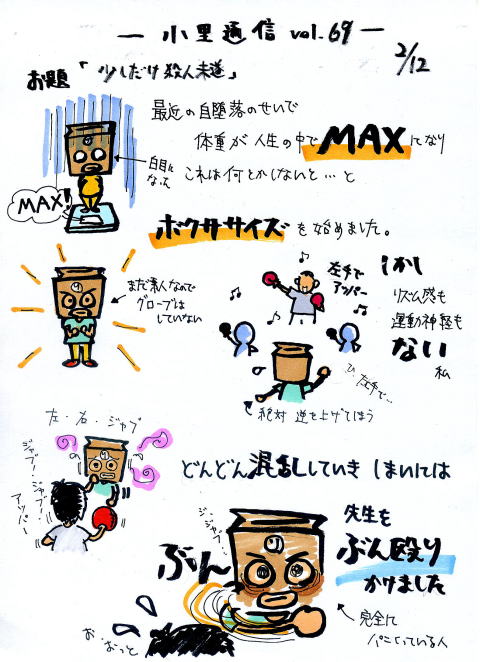 ー 小里通信 vol.69 ー
2/12
お題「少しだけ殺人未遂」
最近の自堕落のせいで
体重が人生の中でMAXになり
白目になった
これは何とかしないと…と
MAX!
ボクササイズを始めました。
まだ素人なので
グローブは
していない
左手で
アッパー
しかし
リズム感も
運動神経も
ない
私
ひ、左手で…
絶対 逆を上げてしまう
左・右・ジャブ
ジャブ!ジャブ・
アッパー
どんどん混乱していき しまいには
ジ、ジャブ…
ぶん
先生を
ぶん殴り
かけました
完全に
パニくっている人
お・おっと